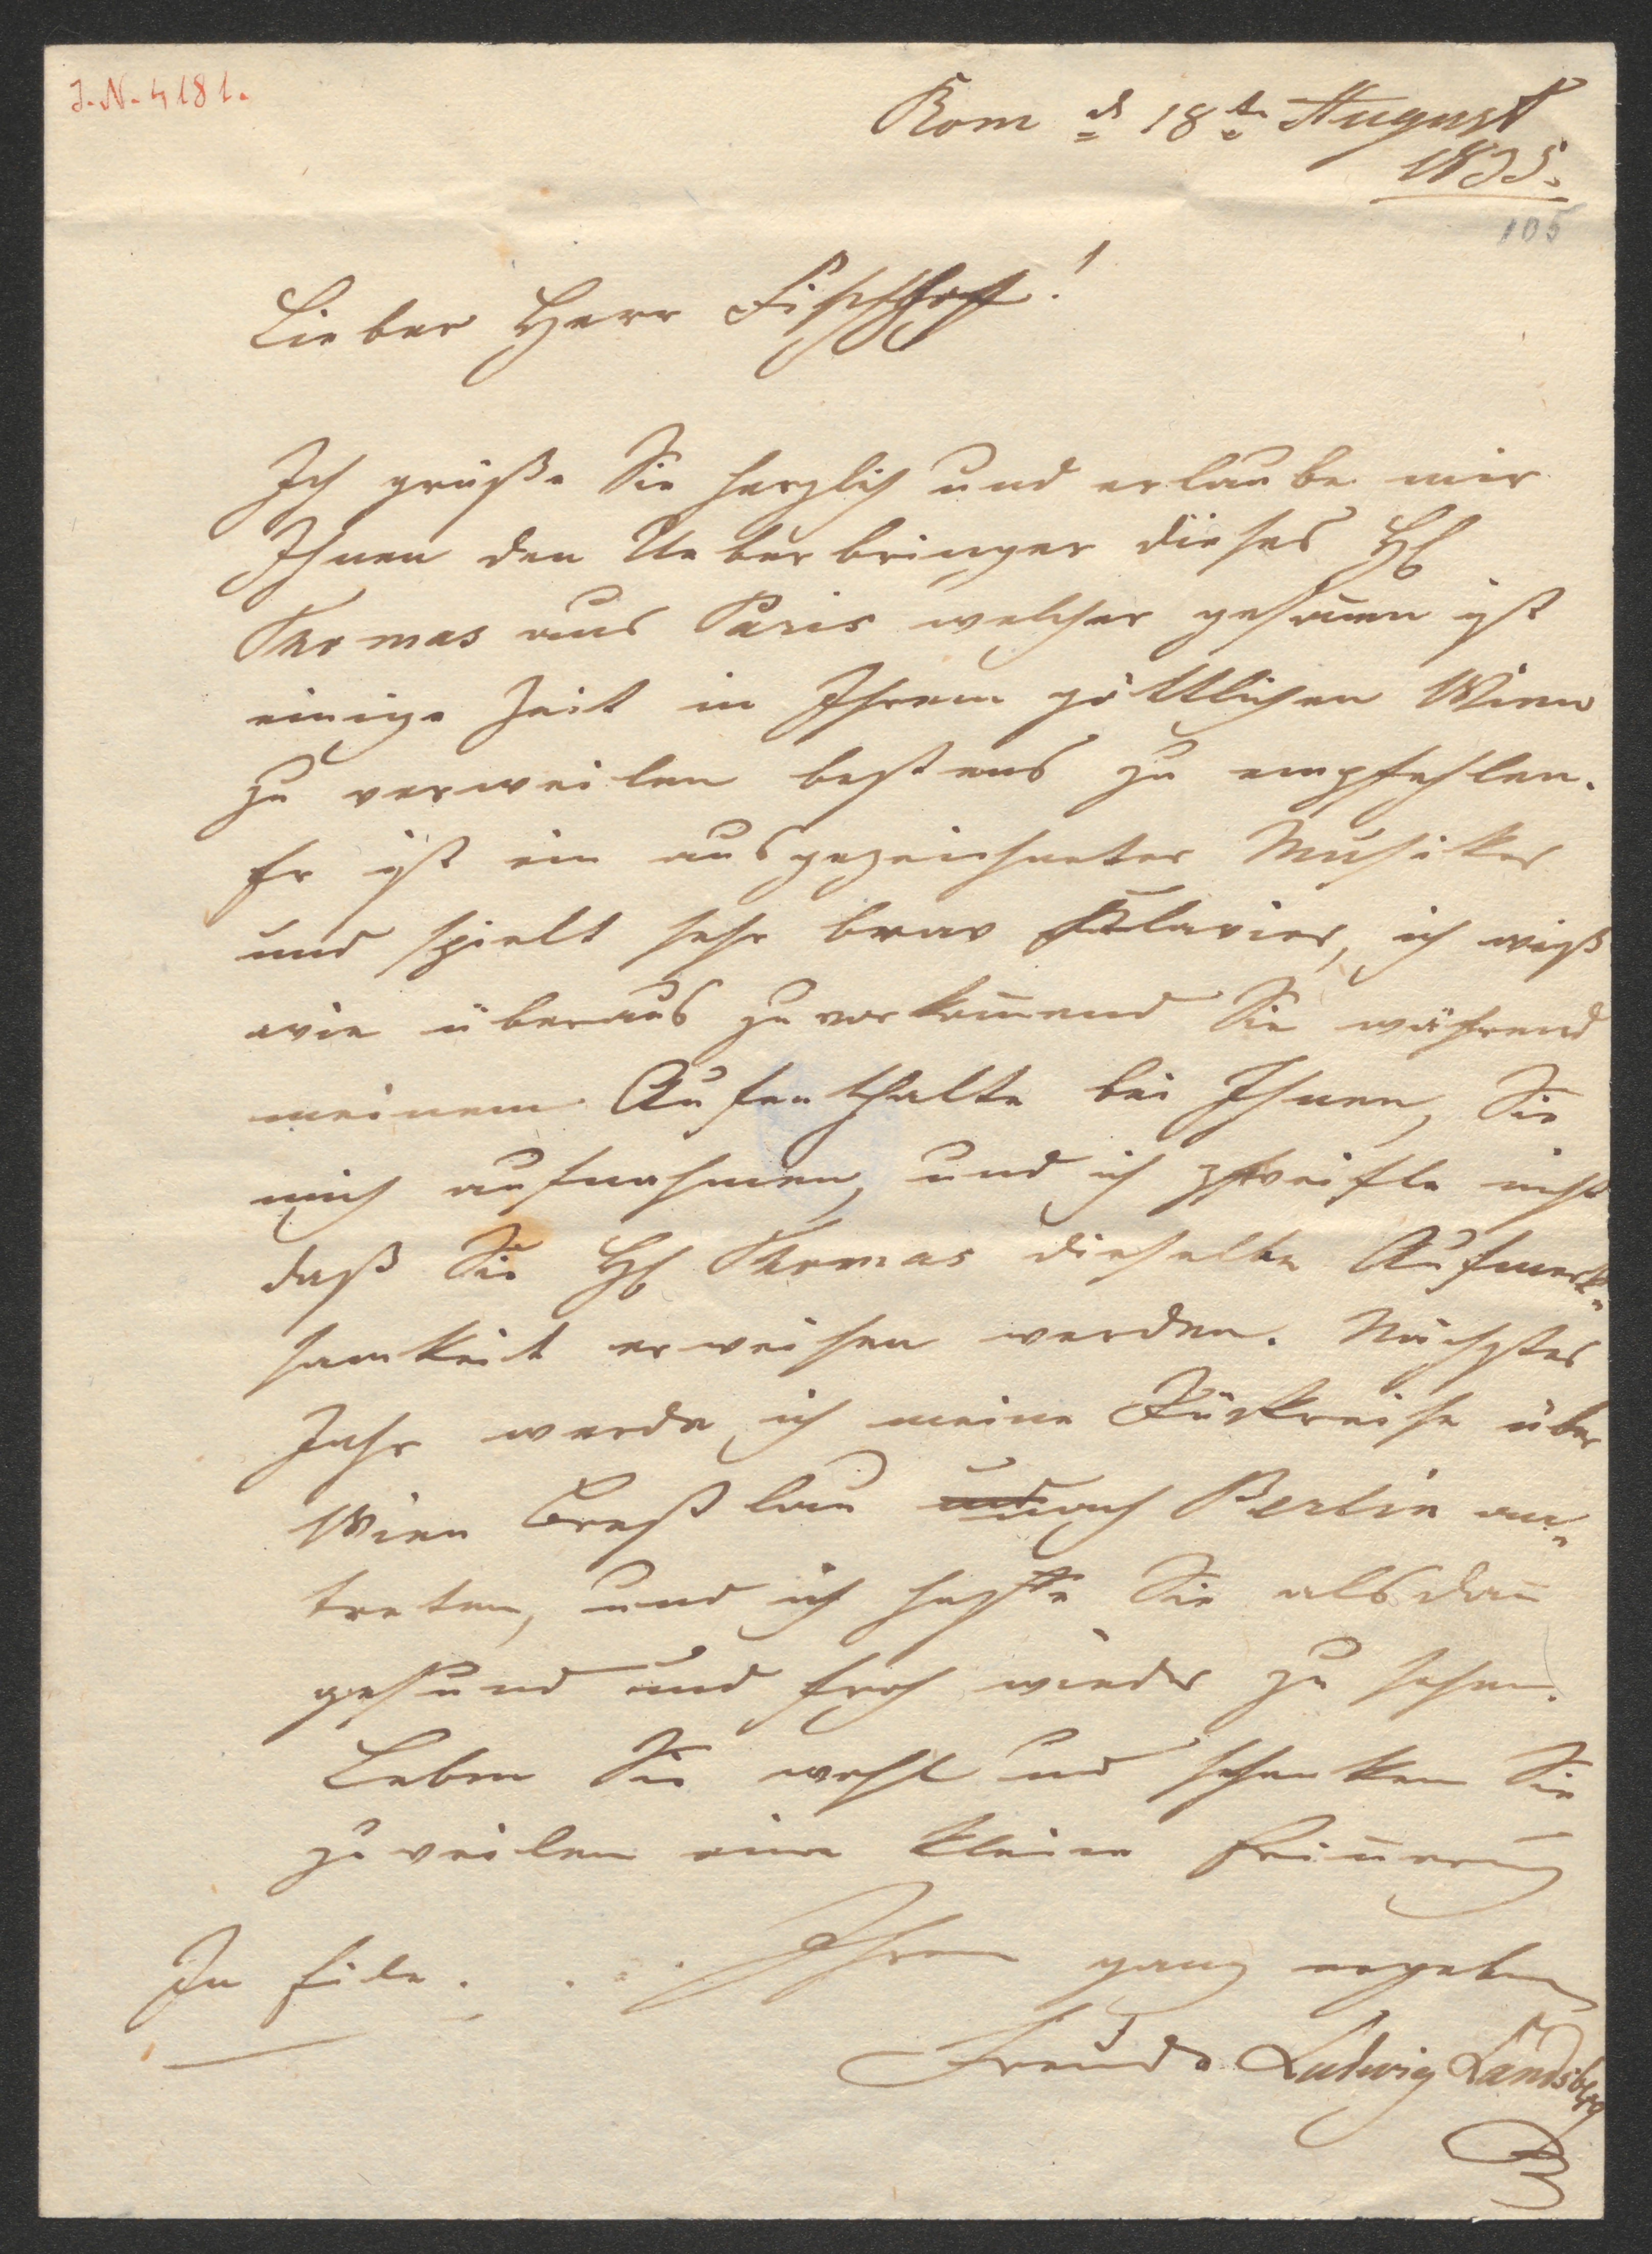 J.N. 4181.
Rom d 18te August
1835.
105
Lieber Herr Fischhoff!
Ich grüße Sie herzlich und erlaube mir
Ihnen den Ueberbringer dieses H
Thomas aus Paris welcher gesonnen ist
einige Zeit in Ihrem göttlichen Wien
zu verweilen bestens zu empfehlen.
Er ist ein ausgezeichneter Musiker
und spielt sehr brav Klavier, ich weiß
wie überaus zuvorkom̄end Sie während
meinem Aufenthalte bei Ihnen, Sie
mich aufnahmen, und ich zweifle nicht
daß Sie H Thomas dieselbe Aufmerk=
samkeit erweisen werden. Nächstes
Jahr werde ich meine Rückreise über
Wien Breßlau nach Berlin an=
treten, und ich hoffe Sie alsdan̄
gesund und froh wieder zu sehen.
Leben Sie wohl und schenken Sie
zuweilen eine kleine Erin̄erung
In Eile. Ihrem ganz ergeben
Freunde Ludwig Landsberg